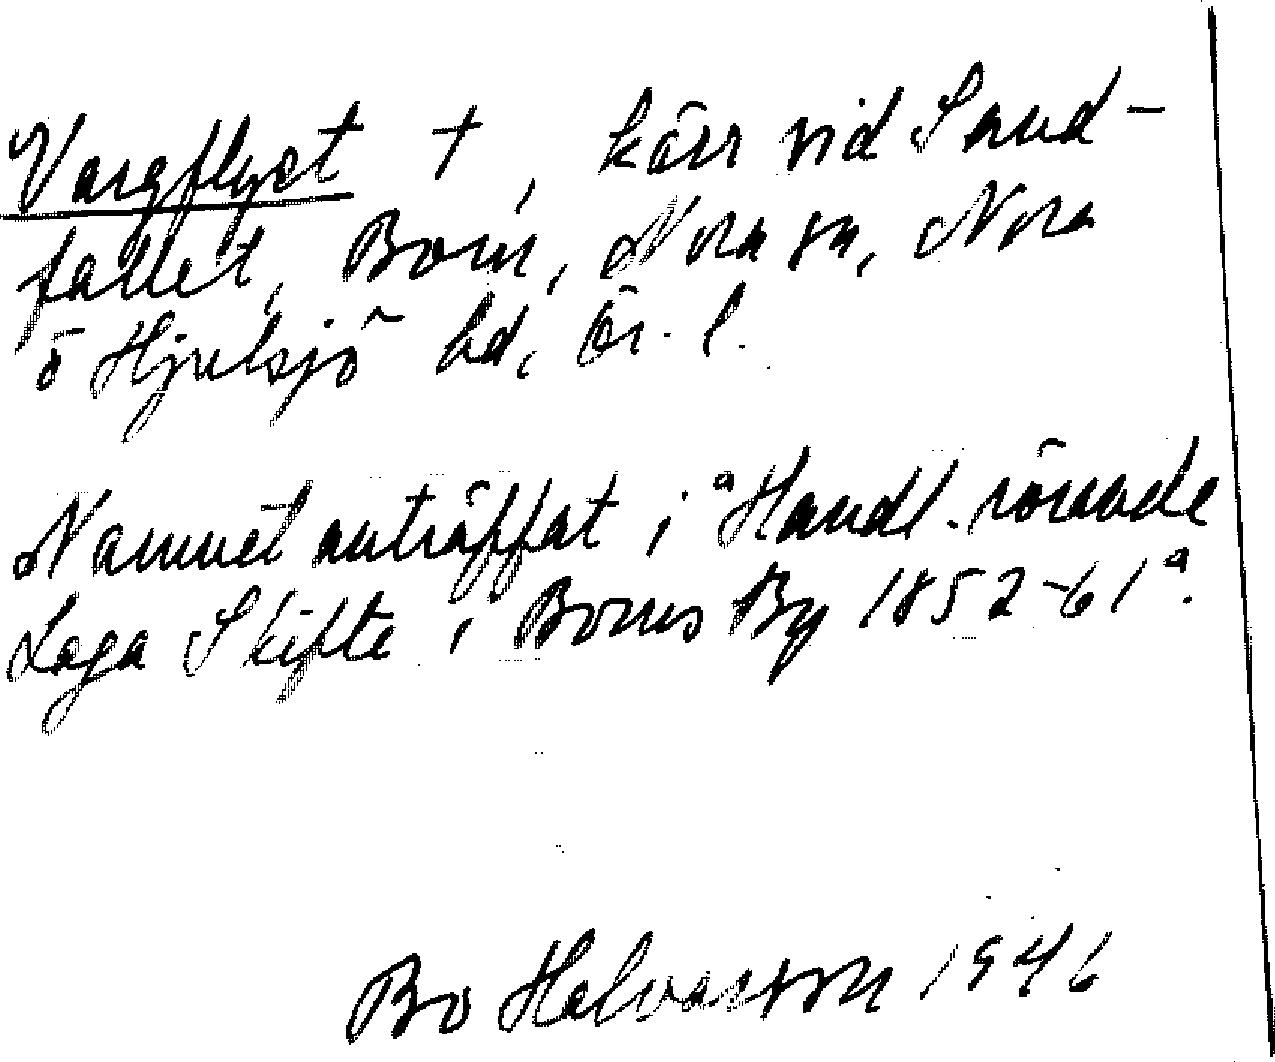 Vargflyet †, kärr vid Sand-
fallet, Born, Nora sn, Nora
o Hjulsjö hd, Ör. l.
Namnet anträffat i "Handl. rörande
Laga Skifte i Borns By 1852-61".
Bo Halvarsson 1946